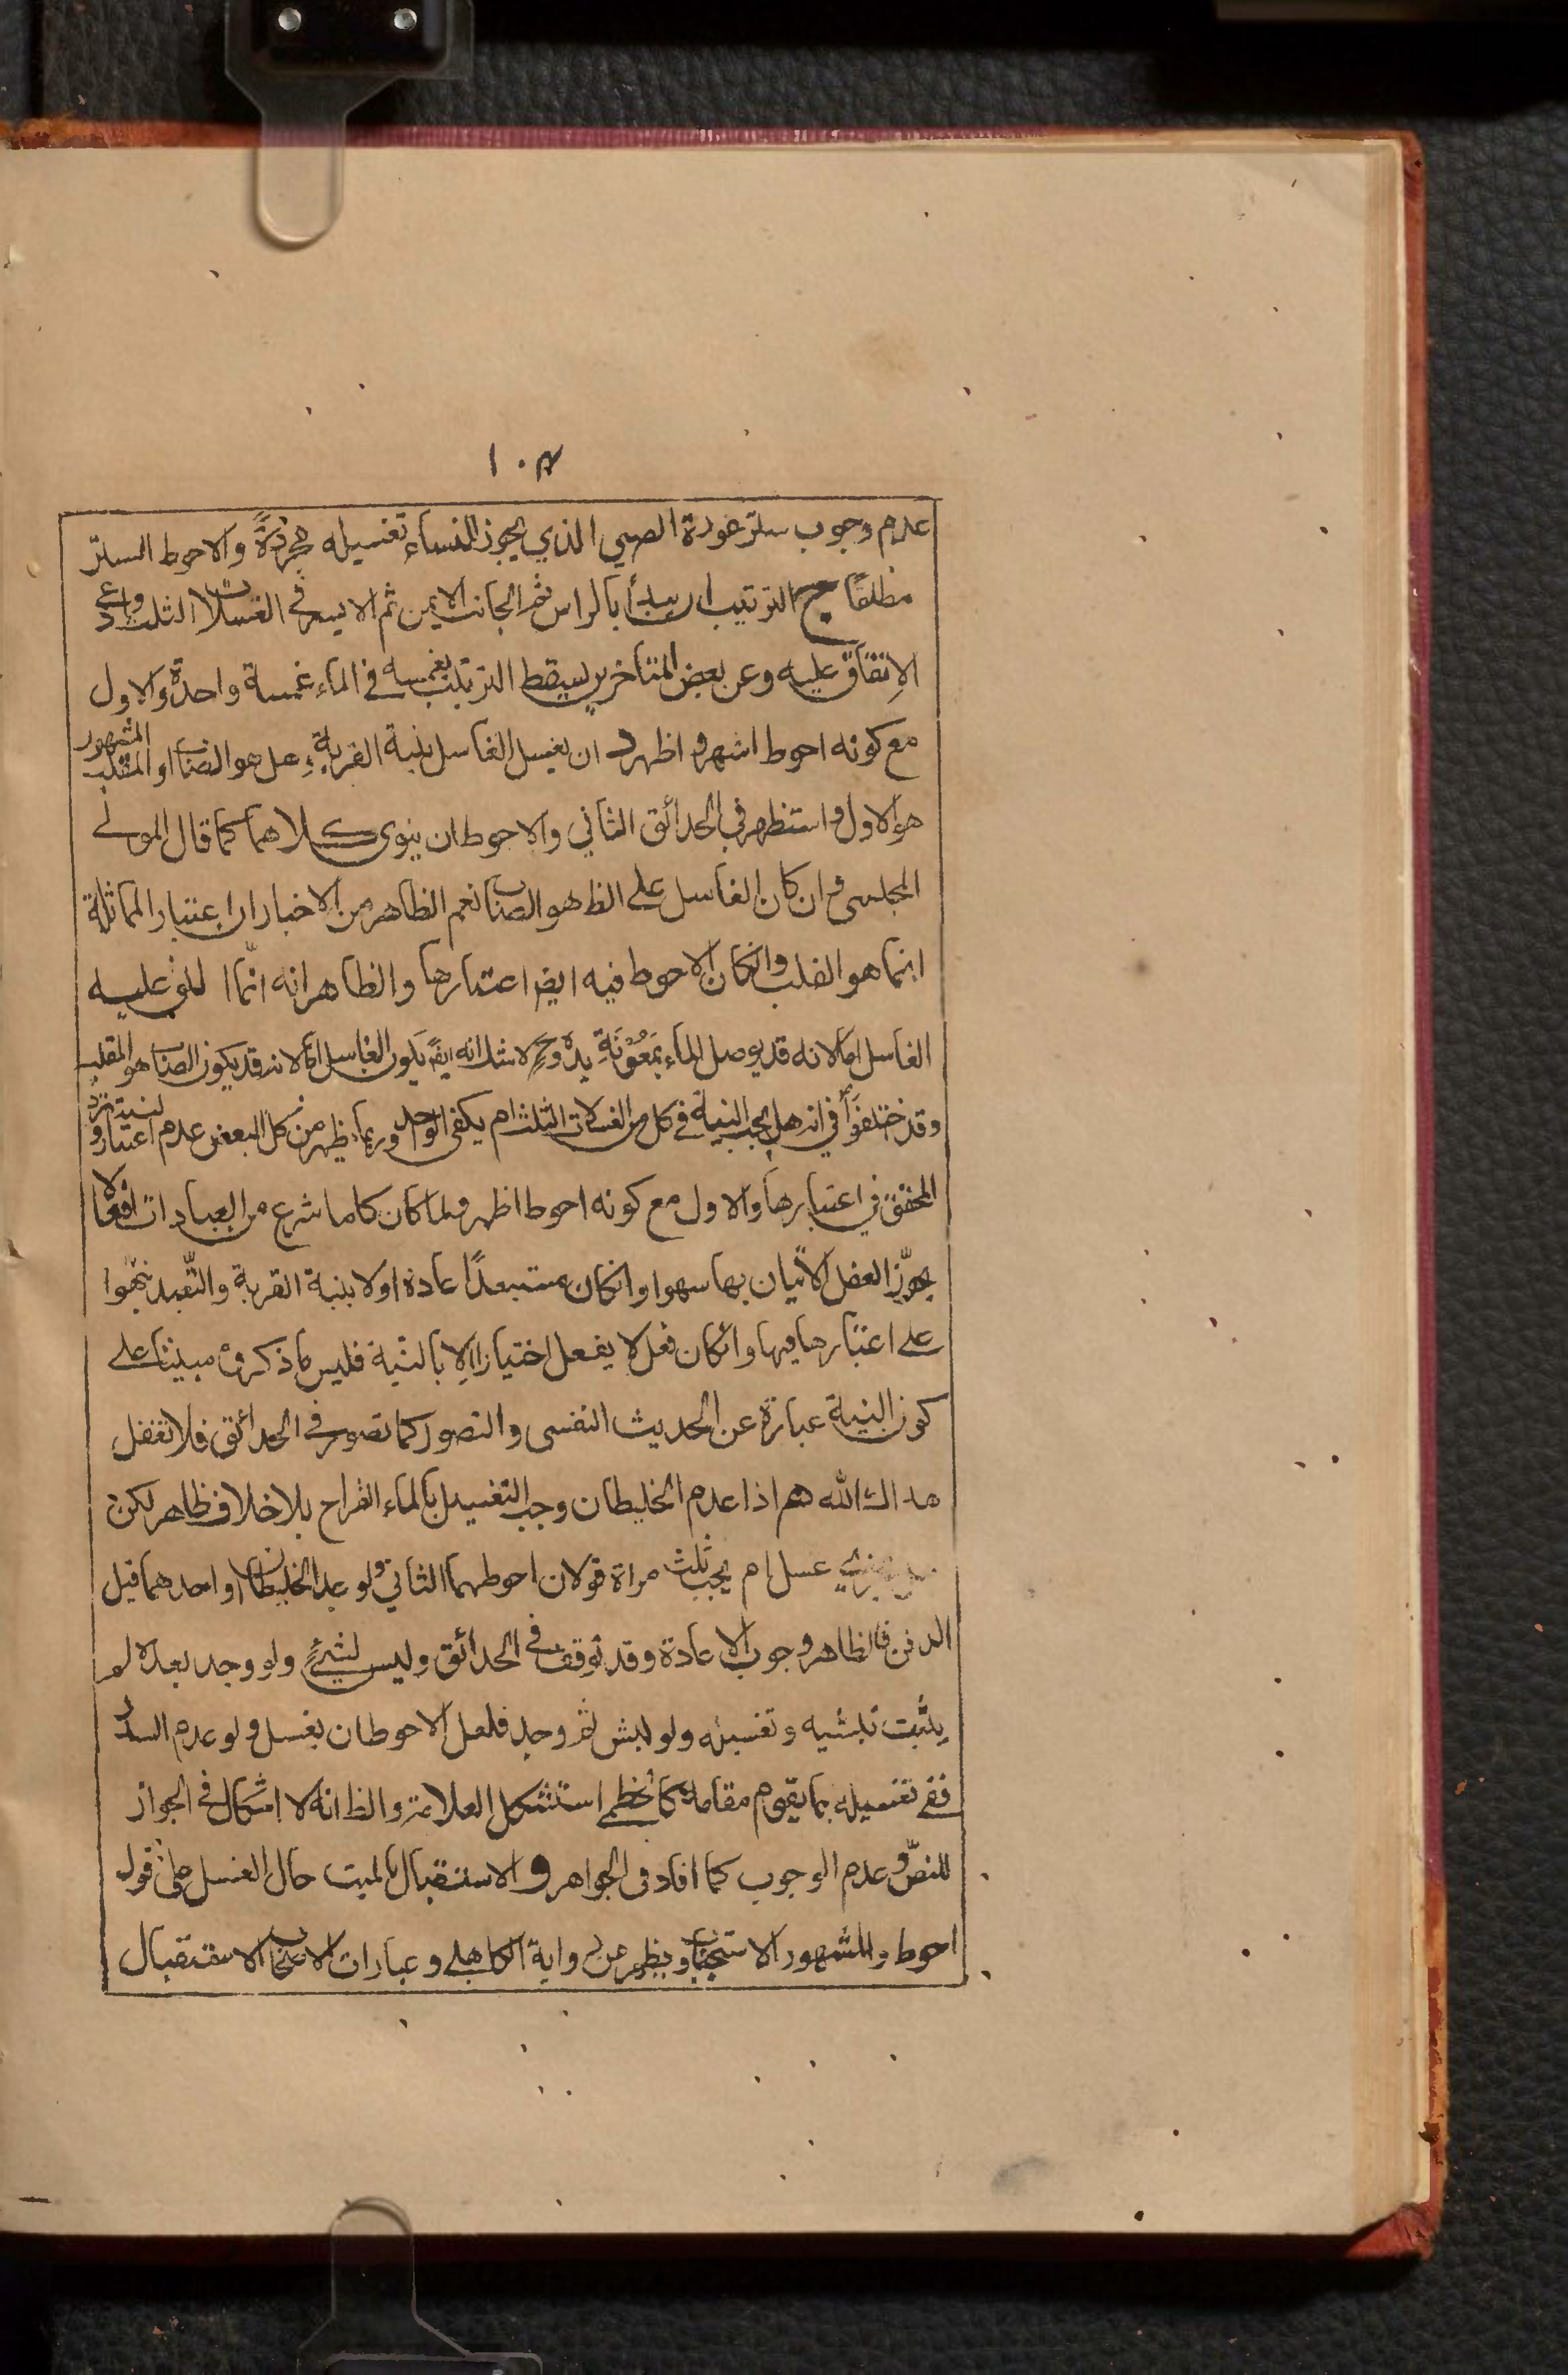 ١٠٨
عدم وجوب ستر عورة الصبي الذي يجوز للنساء تغسيله مجردةً والاحوط الستر
مطلقًا ج الترتيب ان يبدأ بالراس ثم الجانب الايمن ثم الايسر في الغسلات الثلث وادعى
الاتفاق عليه وعن بعض المتأخرين يسقط الترتيب بغمسه في الماء غمسة واحدة والاول
مع كونه احوط اشهر واظهر د ان يغسل الغاسل بنية القربة وهل هو الصاب او المقلب المشهور
هو الاول واستظهر في الحدائق الثاني والاحوط ان ينوى كلاهما كما قال المولى
المجلسى وان كان الغاسل على الظ هو الصاب نعم الظاهر من الاخبار ان اعتبار المماثلة
انما هو المقلب وانكان الاحوط فيه ايض اعتبارها والظاهر انه انّما عليه
الغاسل اما لانه قد يوصل الماء بمَعُوْنَةِ يده وح لا شك انه ايض يكون الغاسل اما لانه قد يكون الصاب هو المقلب
وقد اختلفوا في انه هل يجب النية في كل من الغسلات الثلث ام يكفى الواحد وربما يظهر من كل البعض عدم اعتبار النية وتردد
المحقق في اعتبارها والاول مع كونه احوط اظهر ولما كان كلما شرع من العبادات افعالا
يجوّز العقل الاتيان بها سهوا وانكان مستبعدًا عادة او لا بنية القربة والتّعبد نبّهوا
على اعتبارها فيها وانكان فعل لا يفعل اختيارا الا بالنية فليس ما ذكروه مبينا على
كون النية عبارة عن الحديث النفسى والتصور كما تصور في الحدائق فلا تغفل
هداك الله هم اذا عدم الخليطان وجب التغسيل بالماء القراح بلا خلاف ظاهر لكن
هل يجزى غسل ام يجب ثلث مرات قولان احوطهما الثاني ولو وجد الخليطان او احدهما قبل
الدفن فالظاهر وجوب الاعادة وقد توقف في الحدائق وليس بشئٍ ولو وجد بعده لم
يثبت نبشه وتغسيله ولو نبش ثم وجد فلعل الاحوط ان يغسل ولو عدم السدر
ففي تغسيله بما يقوم مقامه كالخطمى استشكل العلامة والظ انه لا اشكال في الجواز
للنصّ وعدم الوجوب كما افاد في الجواهر و الاستقبال بالميت حال الغسل على قول
احوط والمشهور الاستحباب ويظهر من رواية الكاهلي وعبارات الاصحاب ان الاستقبال